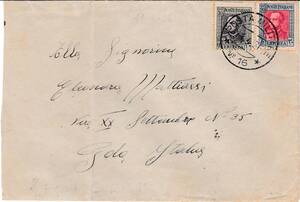 POSTE ITALIANE
POSTA MILITARE
N° 16 *
Alla Signorina
Eleonora Mattiussi
via XX Settembre N° 35
Italia